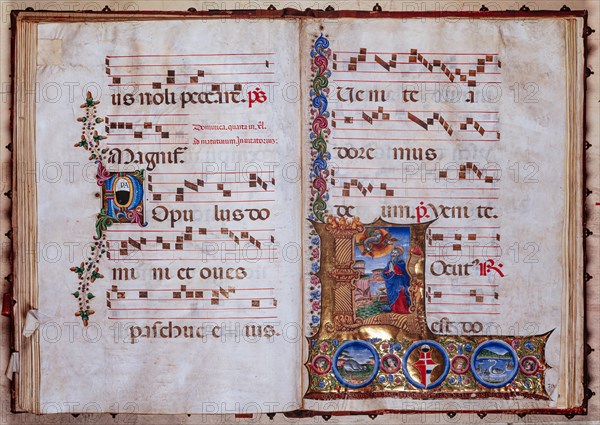 us noli peccare. ps
Dominica, quarta in xl.
Ad matutinum, Invitatoriu;
Magnif.
Popu lus do
mi ni et oves
paschue e ius.
Ve ni te a
dore mus
de um. p. Venite.
Locut; R
est do